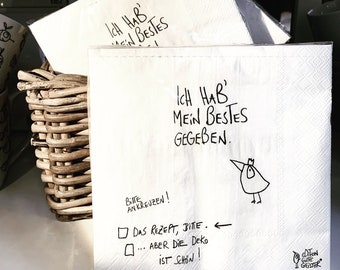 ICH HAB'
MEIN BESTES
GEGEBEN.
ICH HAB'
MEIN BESTES
GEGEBEN.
BITTE
ANKREUZEN!
DAS REZEPT, BITTE. ←
... ABER DIE DEKO
IST SCHÖN!
GUTE
GEISTER